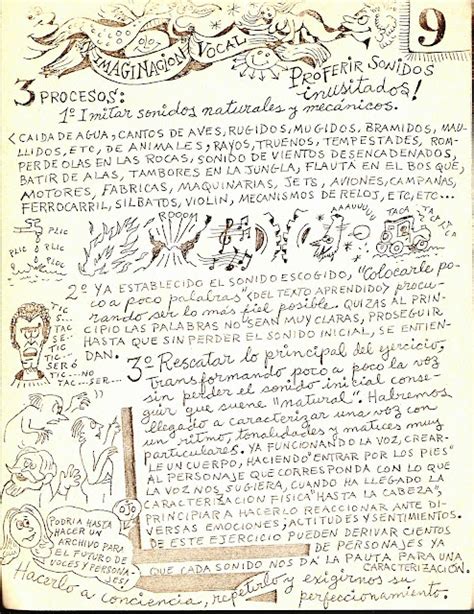 9
IMAGINACION VOCAL
PROFERIR SONIDOS
inusitados!
3 PROCESOS:
1º Imitar sonidos naturales y mecánicos.
<CAIDA DE AGUA, CANTOS DE AVES, RUGIDOS, MUGIDOS, BRAMIDOS, MAU-
LLIDOS, ETC, DE ANIMALES; RAYOS, TRUENOS, TEMPESTADES, ROM-
PER DE OLAS EN LAS ROCAS, SONIDO DE VIENTOS DESENCADENADOS,
BATIR DE ALAS, TAMBORES EN LA JUNGLA, FLAUTA EN EL BOSQUE,
MOTORES, FABRICAS, MAQUINARIAS, JETS, AVIONES, CAMPAÑAS,
FERROCARRIL, SILBATOS, VIOLIN, MECANISMOS DE RELOJ, ETC, ETC...
PLIC
PLIC
PLIC
PLIC
ROOOM
AAUUUUU
TACA
TACA
2º YA ESTABLECIDO EL SONIDO ESCOGIDO, "Colocarle po-
co a poco palabras" <DEL TEXTO APRENDIDO> procu-
rando ser lo más fiel posible. QUIZAS AL PRIN-
CIPIO LAS PALABRAS NO SEAN MUY CLARAS, PROSEGUIR
HASTA QUE SIN PERDER EL SONIDO INICIAL, SE ENTIEN-
DAN.
TIC...
TAC
SE
TIC...
SERÓ
TIC...NO
TAC...SER...
3º Rescatar lo principal del ejercicio,
transformando poco a poco la voz
sin perder el sonido inicial conse-
guir que suene "natural". Habremos
llegado a caracterizar una voz con
un ritmo, tonalidades y matices muy
particulares. YA FUNCIONANDO LA VOZ, CREAR-
LE UN CUERPO, HACIENDO "ENTRAR POR LOS PIES"
AL PERSONAJE QUE CORRESPONDA CON LO QUE
LA VOZ NOS SUGIERA, CUANDO HA LLEGADO LA
CARACTERIZACION FISICA "HASTA LA CABEZA",
PRINCIPIAR A HACERLO REACCIONAR ANTE DI-
VERSAS EMOCIONES; ACTITUDES Y SENTIMIENTOS.
DE ESTE EJERCICIO PUEDEN DERIVAR CIENTOS
DE PERSONAJES YA
QUE CADA SONIDO NOS DA LA PAUTA PARA UNA
CARACTERIZACIÓN.
PODRIA HASTA
HACER UN
ARCHIVO PARA
EL FUTURO DE
VOCES Y PERSONA-
JES!
Hacerlo a conciencia, repetirlo y exigirnos su
perfeccionamiento.